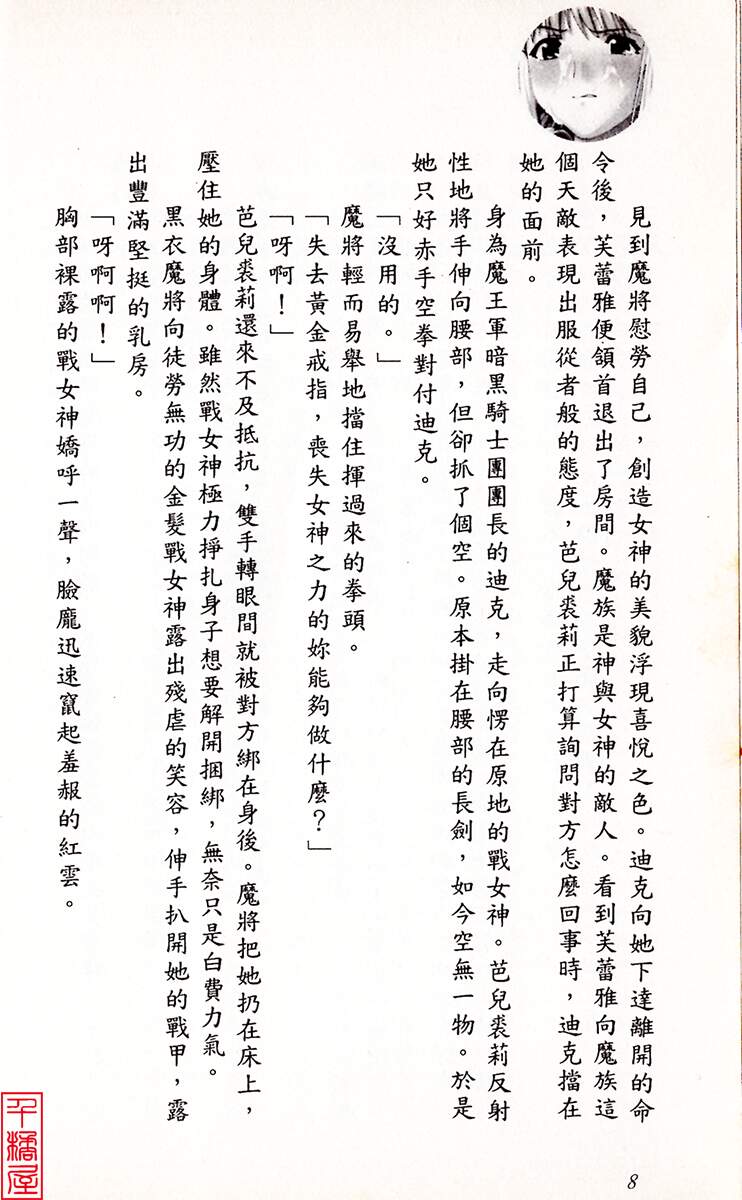 見到魔將慰勞自己，創造女神的美貌浮現喜悅之色。迪克向她下達離開的命
令後，芙蕾雅便頷首退出了房間。魔族是神與女神的敵人。看到芙蕾雅向魔族這
個天敵表現出服從者般的態度，芭兒裘莉正打算詢問對方怎麼回事時，迪克擋在
她的面前。
身為魔王軍暗黑騎士團團長的迪克，走向愣在原地的戰女神。芭兒裘莉反射
性地將手伸向腰部，但卻抓了個空。原本掛在腰部的長劍，如今空無一物。於是
她只好赤手空拳對付迪克。
「沒用的。」
魔將輕而易舉地擋住揮過來的拳頭。
「失去黃金戒指，喪失女神之力的妳能夠做什麼？」
「呀啊！」
芭兒裘莉還來不及抵抗，雙手轉眼間就被對方綁在身後。魔將把她扔在床上，
壓住她的身體。雖然戰女神極力掙扎身子想要解開捆綁，無奈只是白費力氣。
黑衣魔將向徒勞無功的金髮戰女神露出殘虐的笑容，伸手扒開她的戰甲，露
出豐滿堅挺的乳房。
「呀啊啊！」
胸部裸露的戰女神嬌呼一聲，臉龐迅速竄起羞赧的紅雲。
8
千橘屋